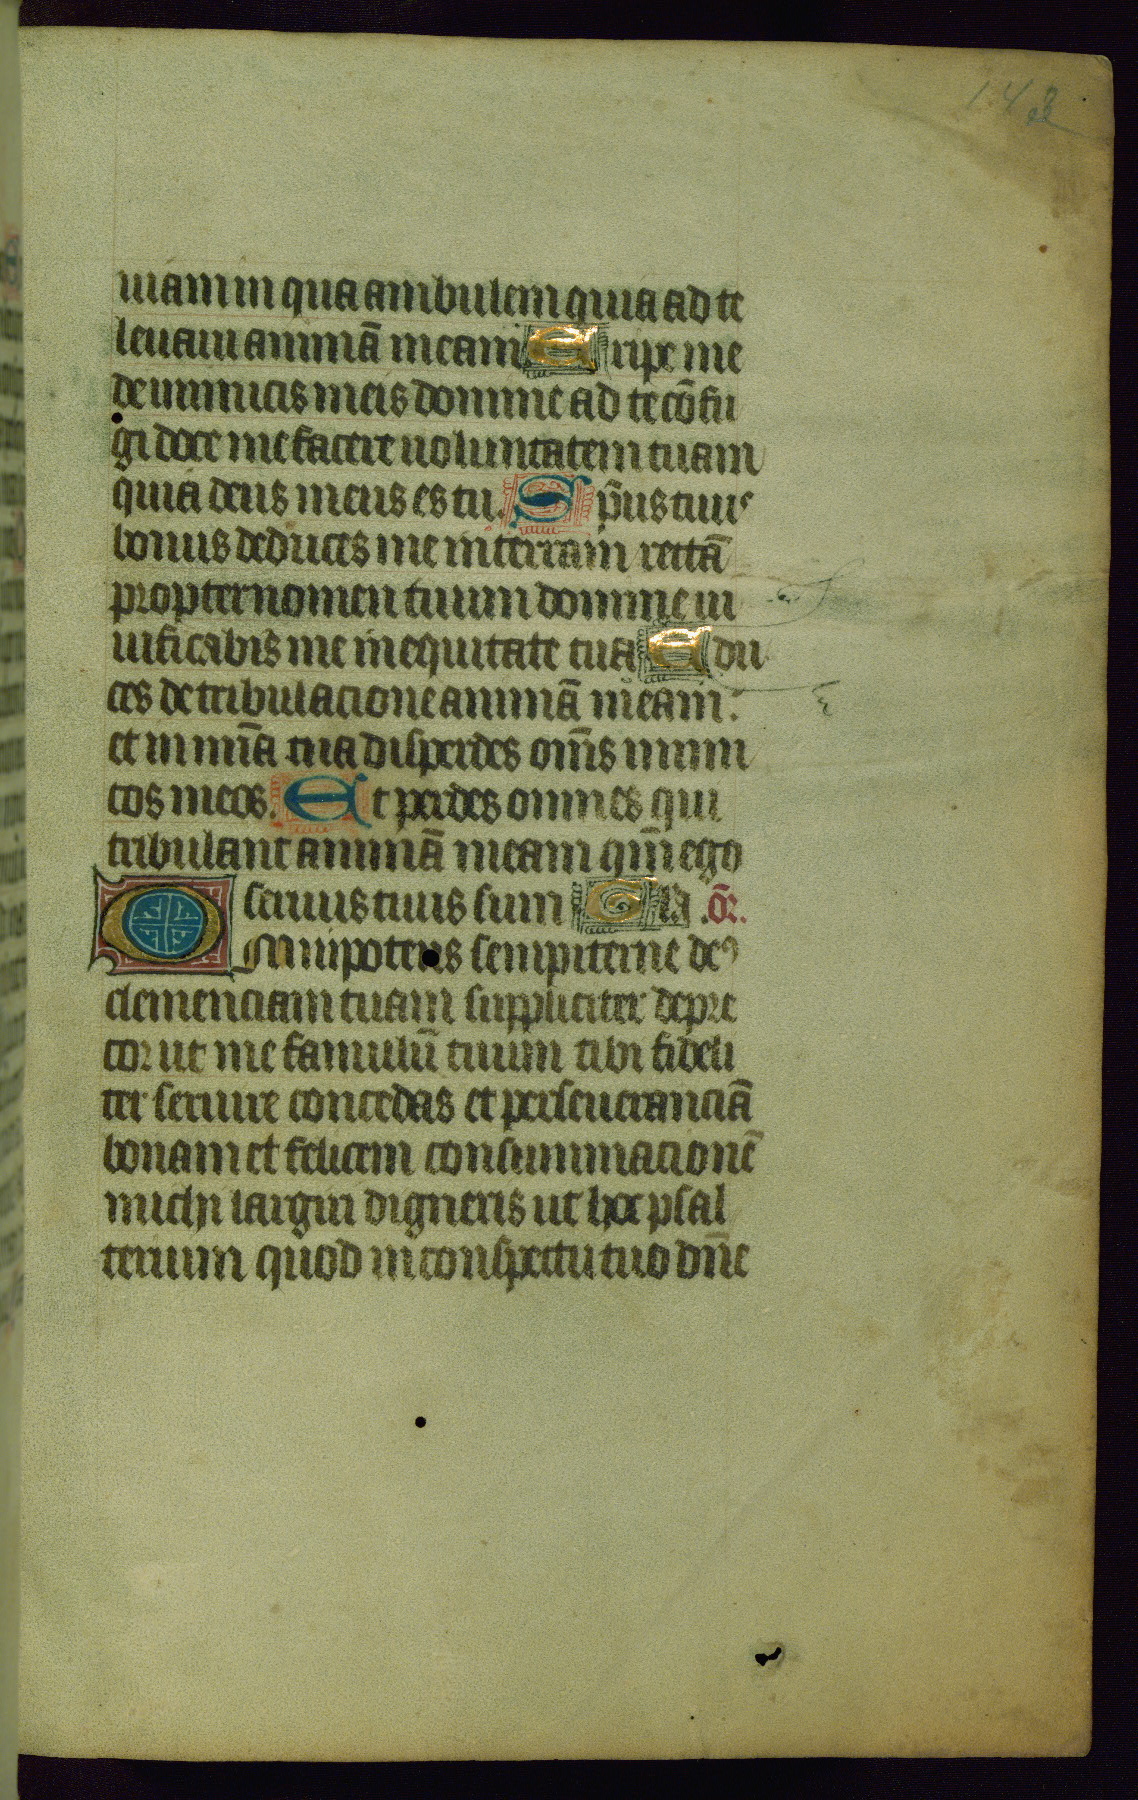 142
uiam in qua ambulem quia ad te
leuaui animā meam Eripe me
de inimicis meis domine ad te cōfu
gi doce me facere uoluntatem tuam
quia deus meus es tu. Sp̄us tuus
bonus deducet me in terram rectā
propter nomen tuum domine ui
uificabis me in equitate tua Edu
ces de tribulacione animā meam.
et in mīa tua disperdes om̄s inimi
cos meos. Et perdes omnes qui
tribulant animā meam qm̄ ego
seruus tuus sum Gla. Or̄.
Omnipotens sempiterne deꝰ
clemenciam tuam suppliciter depre
cor ut me famulū tuum tibi fideli
ter seruire concedas et perseueranciā
bonam et felicem consummacionē
michi largiri digneris ut hoc psal
terium quod in conspectu tuo dn̄e